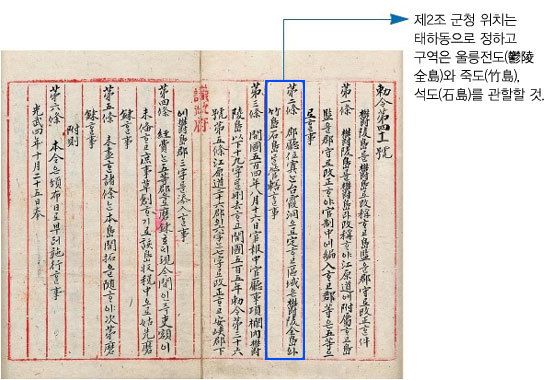 제2조 군청 위치는
태하동으로 정하고
구역은 울릉전도(鬱陵
全島)와 죽도(竹島),
석도(石島)를 관할할 것.
勅令第四十一號
鬱陵島를鬱島로改稱ᄒᆞ고島監을郡守로改正ᄒᆞᆫ件
第一條 鬱陵島를鬱島라改稱ᄒᆞ야江原道에附屬ᄒᆞ고島
監을郡守로改正ᄒᆞ야官制中에編入ᄒᆞ고郡等은五等으
로ᄒᆞᆯ事
第二條 郡廳位寘는台霞洞으로定ᄒᆞ고區域은鬱陵全島와
竹島石島를管轄ᄒᆞᆯ事
第三條 開國五百四年八月十六日官報中官廳事項欄內鬱
陵島以下十九字를刪去ᄒᆞ고開國五百五年勅令第三十六
號第五條江原道二十六郡의六字는七字로改正ᄒᆞ고安峽郡下
에鬱島郡三字를添入ᄒᆞᆯ事
議政府
第四條 經費는五等郡으로磨鍊호ᄃᆡ現今間인즉吏額이
未備ᄒᆞ고庶事草創ᄒᆞ기로該島收稅中으로姑先磨
鍊ᄒᆞᆯ事
第五條 未盡ᄒᆞᆫ諸條는本島開拓을隨ᄒᆞ야次第磨
鍊ᄒᆞᆯ事
附則
第六條 本令은頒布日로부터施行ᄒᆞᆯ事
光武四年十月二十五日奉